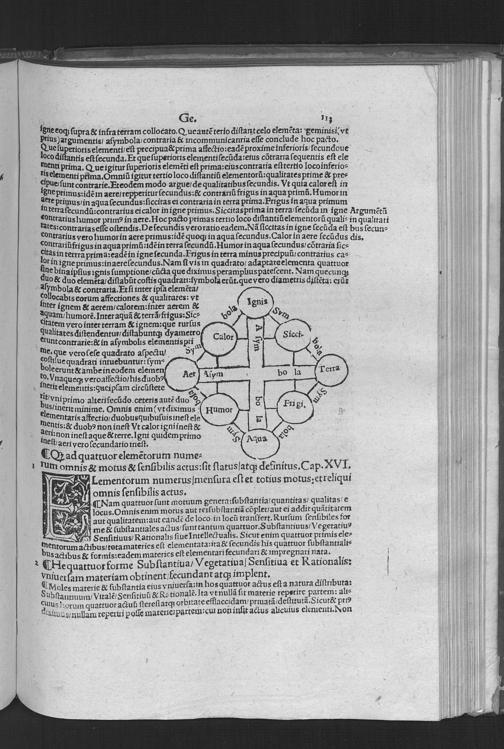 Ge. 113
igne eoq; supra & infra terram collocato. Que autē terio distant celo elemēta: geminis
prius argumentis: asymbola: contraria & incommunicantia esse conclude hoc pacto.
Que superioris elementi est precipua & prima affectio: eadē proxime inferioris secunda
loco distantis est secunda. Et que superioris elementi secūda: eius cōtraria sequentis est ele
menti prima. Que igitur superioris elemēti est prima: eius contraria est tertio loco inferio
ris elementi prima. Omniū igitur tertio loco distantiū elementorū: qualitates prime & pre
cipue sunt contrarie. Et eodem modo argue de qualitatibus secundis. Vt quia calor est in
igne primus: idē in aere reperitur secundus: & contrariū frigus in aqua primū. Humor in
aere primus: in aqua secundus: siccitas ei contraria in terra prima. Frigus in aqua primum
in terra secundū: contrarius ei calor in igne primus. Siccitas prima in terra: secūda in igne
contrarius humor primus in aere. Hoc pacto primas tertio loco distantiū elementorū quali
tates: contrarias esse ostendis. De secundis vero ratio eadem. Nā siccitas in igne secūda est
contrarius vero humor in aqua secundus. Calor in aere secūdus
contrariū frigus in aqua primū: idē in terra secundū. Humor in aqua secundus: cōtraria sic
citas in terra prima: eadē in igne secunda. Frigus in terra minus precipuū: contrarius ca
lor in igne primus: in aere secundus. Nam si vis in quadrato: adaptare elementa quattuor
sine bina ipsius ignis sumptione: cūcta que diximus peramplius patescent. Nam quecunq;
duo & duo elemēta: distabūt costis quadrati: symbola erūt: que vero diametris distēta: erūt
asymbola & contraria. Et si inter ipsa elemēta
collocabis eorum affectiones & qualitates: vt
inter ignem & aerem: calorem: inter aerem &
aquam: humorē. Inter aquā & terrā: frigus: Sic
citatem vero inter terram & ignem: que rursus
qualitates distendentur: distabuntq; dyametro
erunt contrarie: & in asymbolis elementis pri
me, que vero sese quadrato aspectu:
costisue quadrati intuebuntur: sym
bole erunt & ambe in eodem elemen
to. Vnaqueq; vero affectio his duobus
inerit elementis: que ipsam circūstete
ris: vni primo alteri secūdo. ceteris autē duo
bus: inerit minime. Omnis enim (vt diximus
elementaris affectio: duobus quibusuis inest ele
mentis: & duobus non inest Vt calor igni inest &
aeri: non inest aque & terre. Igni quidem primo
inest: aeri vero secundario inest.
Argumētū
in qualitati
bus secun-
dis.
Ignis
Sicci.
Terra
Frigi.
Aqua
Humor
Aer
Calor
Sym bola
Sym bola
Sym bola
Sym bola
Asym bo la
Asym bo la
¶ Qꝫ ad quattuor elemētorum nume-
1 rum omnis & motus & sensibilis actus: sit status atq; definitus. Cap. XVI.
Elementorum numerus: mensura est et totius motus: et reliqui
omnis sensibilis actus.
¶ Nam quattuor sunt motium genera: substantia: quantitas: qualitas: e
locus. Omnis enim motus aut rei substantiā cōplet: aut ei addit quātitatem
aut qualitatem: aut eandē de loco in locū transfert. Rursum sensibiles for
me & substantiales actus: sunt tantum quattuor. Substantiuus: Vegetatiuus
Sensitiuus: Rationalis siue Intellectualis. Sicut enim quattuor primis ele-
mentorum actibus: tota materies est elementata: ita & secundis his quattuor substantiali-
bus actibus & formis: eadem materies est elementari secundari & impregnari nata.
2 ¶ He quattuor forme Substantiua: Vegetatiua: Sensitiua et Rationalis:
vniuersam materiam obtinent: secundant atq; implent.
¶ Moles materie & substantia eius vniuersa: in hos quattuor actus est a natura distributa:
Substantiuum: Vitalē: Sensitiuū & Rationalē. Ita vt nulla sit materie reperire partem: ali-
cuius horum quattuor actuū
nullam reperiri posse materie: partem: cui non insit actus alicuius elementi. Non